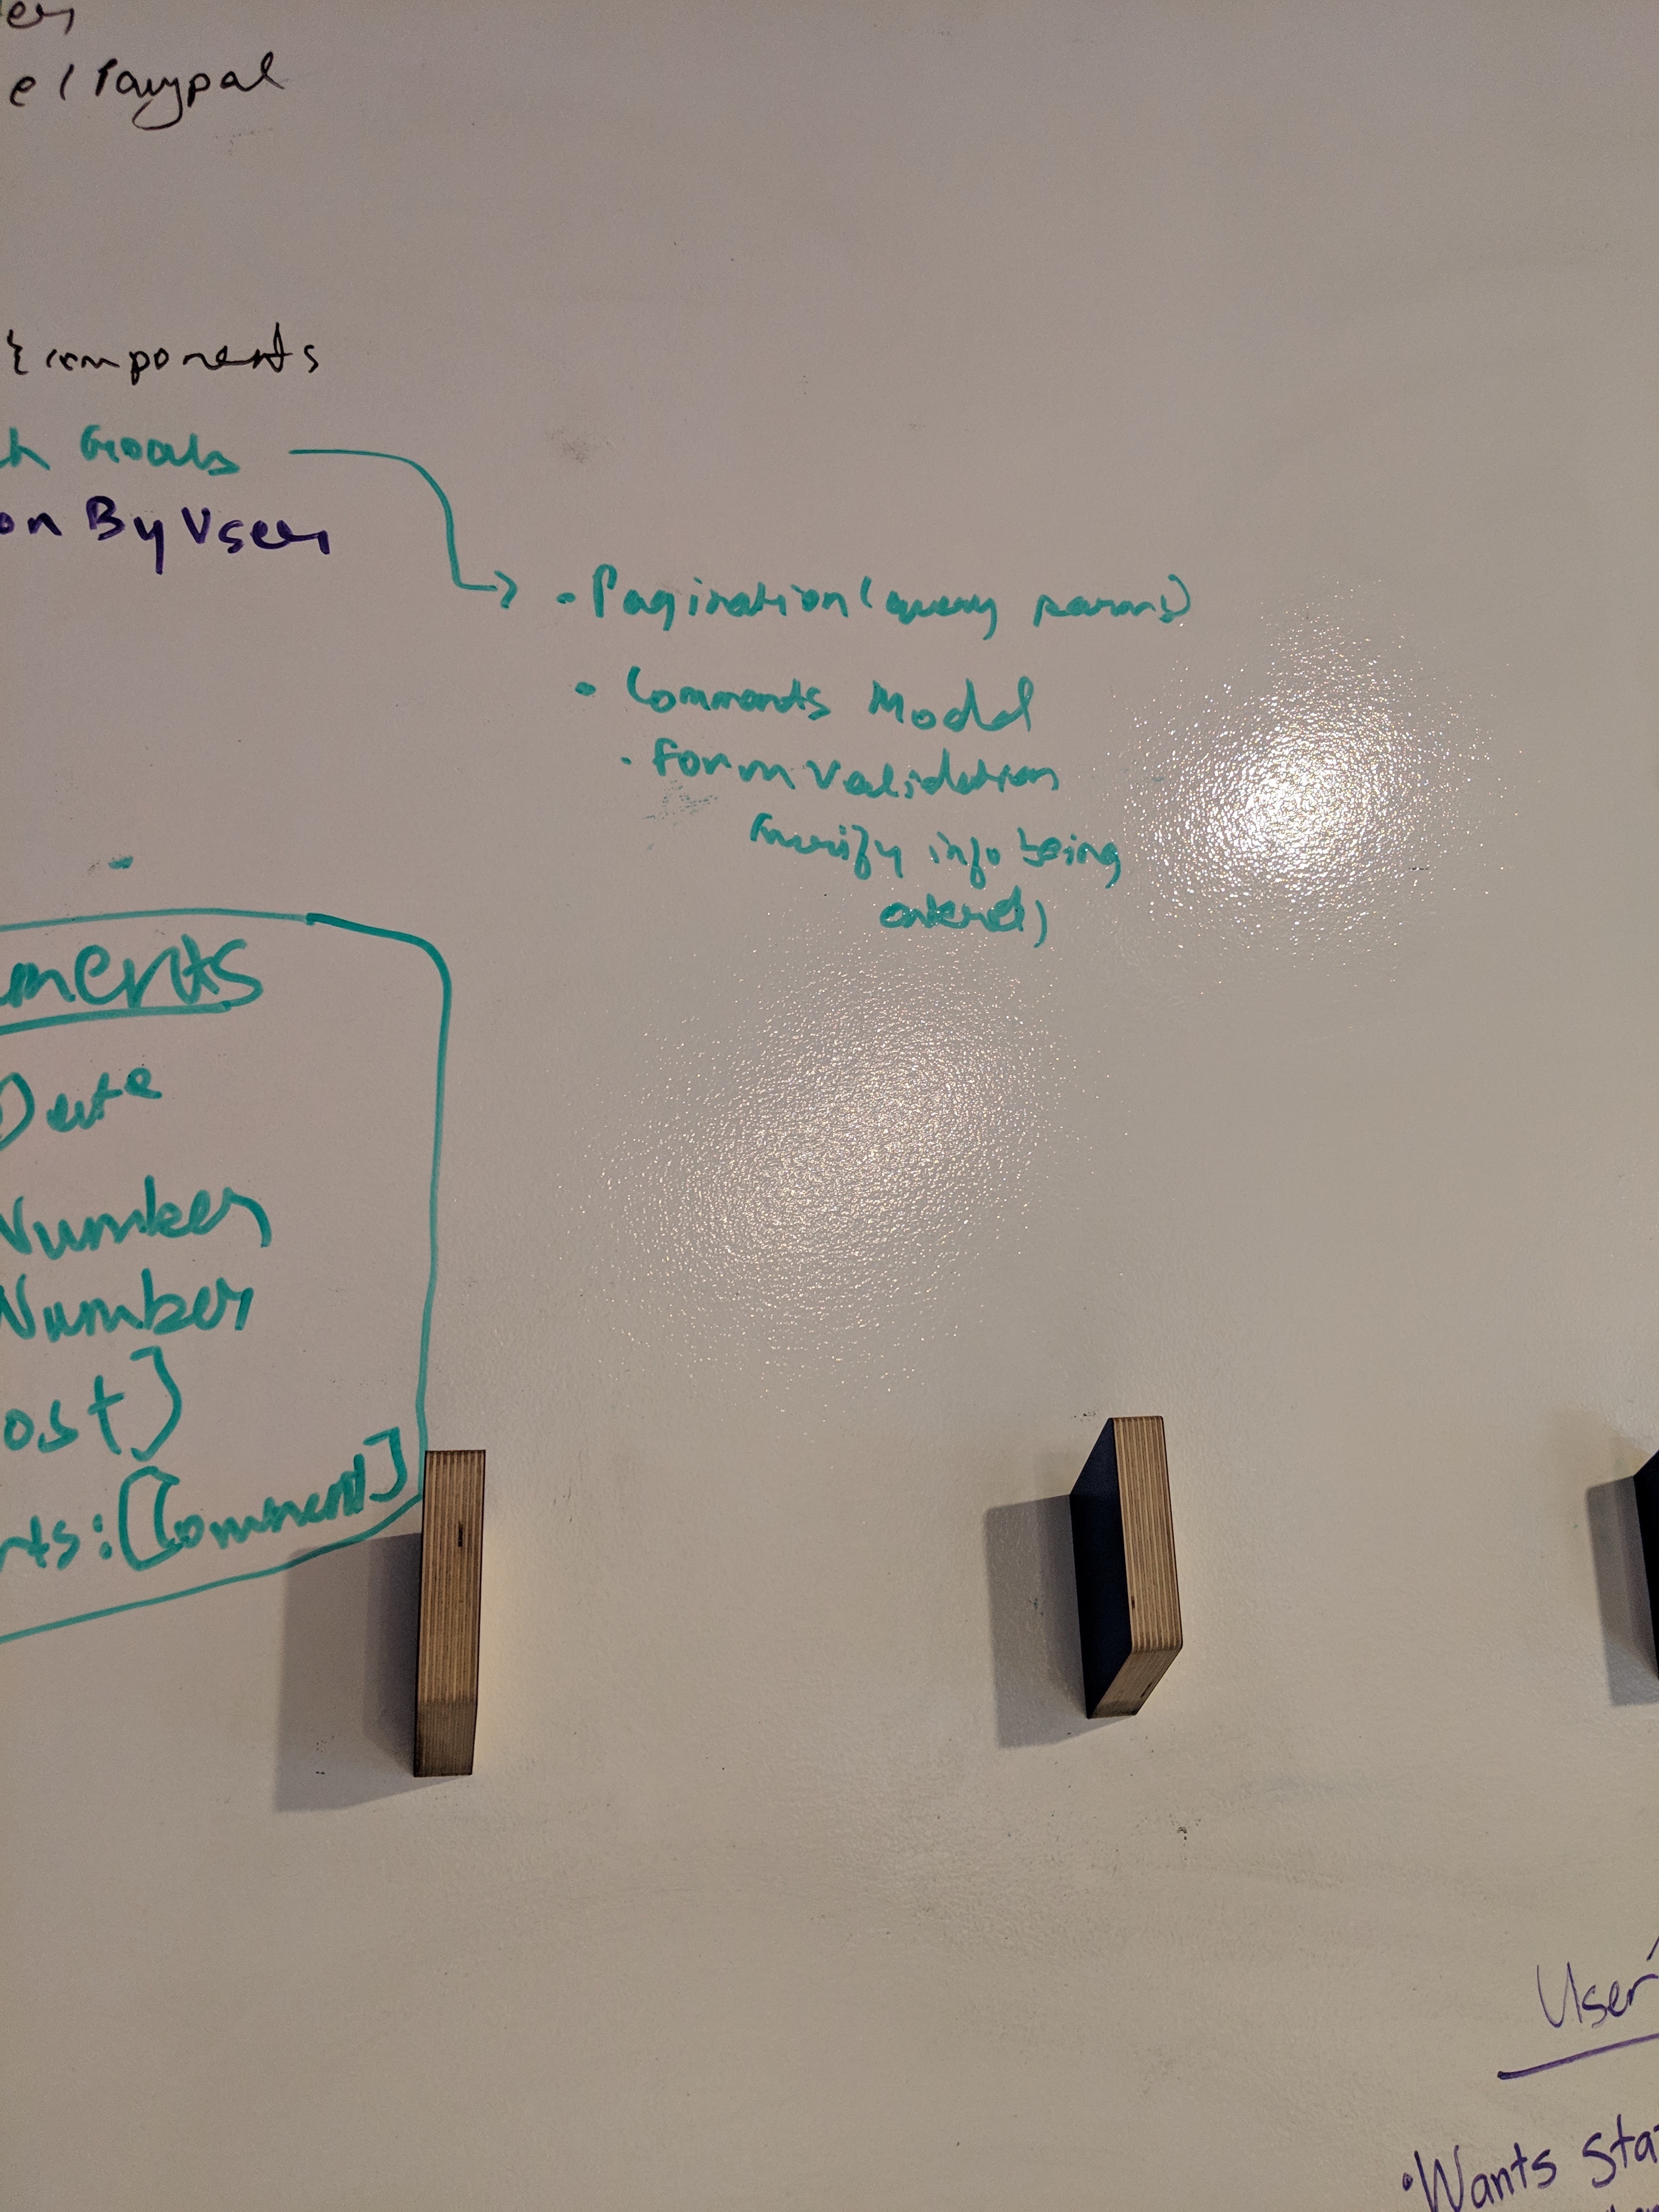 e / Paypal
components
Goals
on By User
• Pagination (query params)
• Comments Model
• Form Validation
(verify info being
entered)
ments
Date
Number
Number
ost]
nts: [Comment]
User'
• Wants Sta